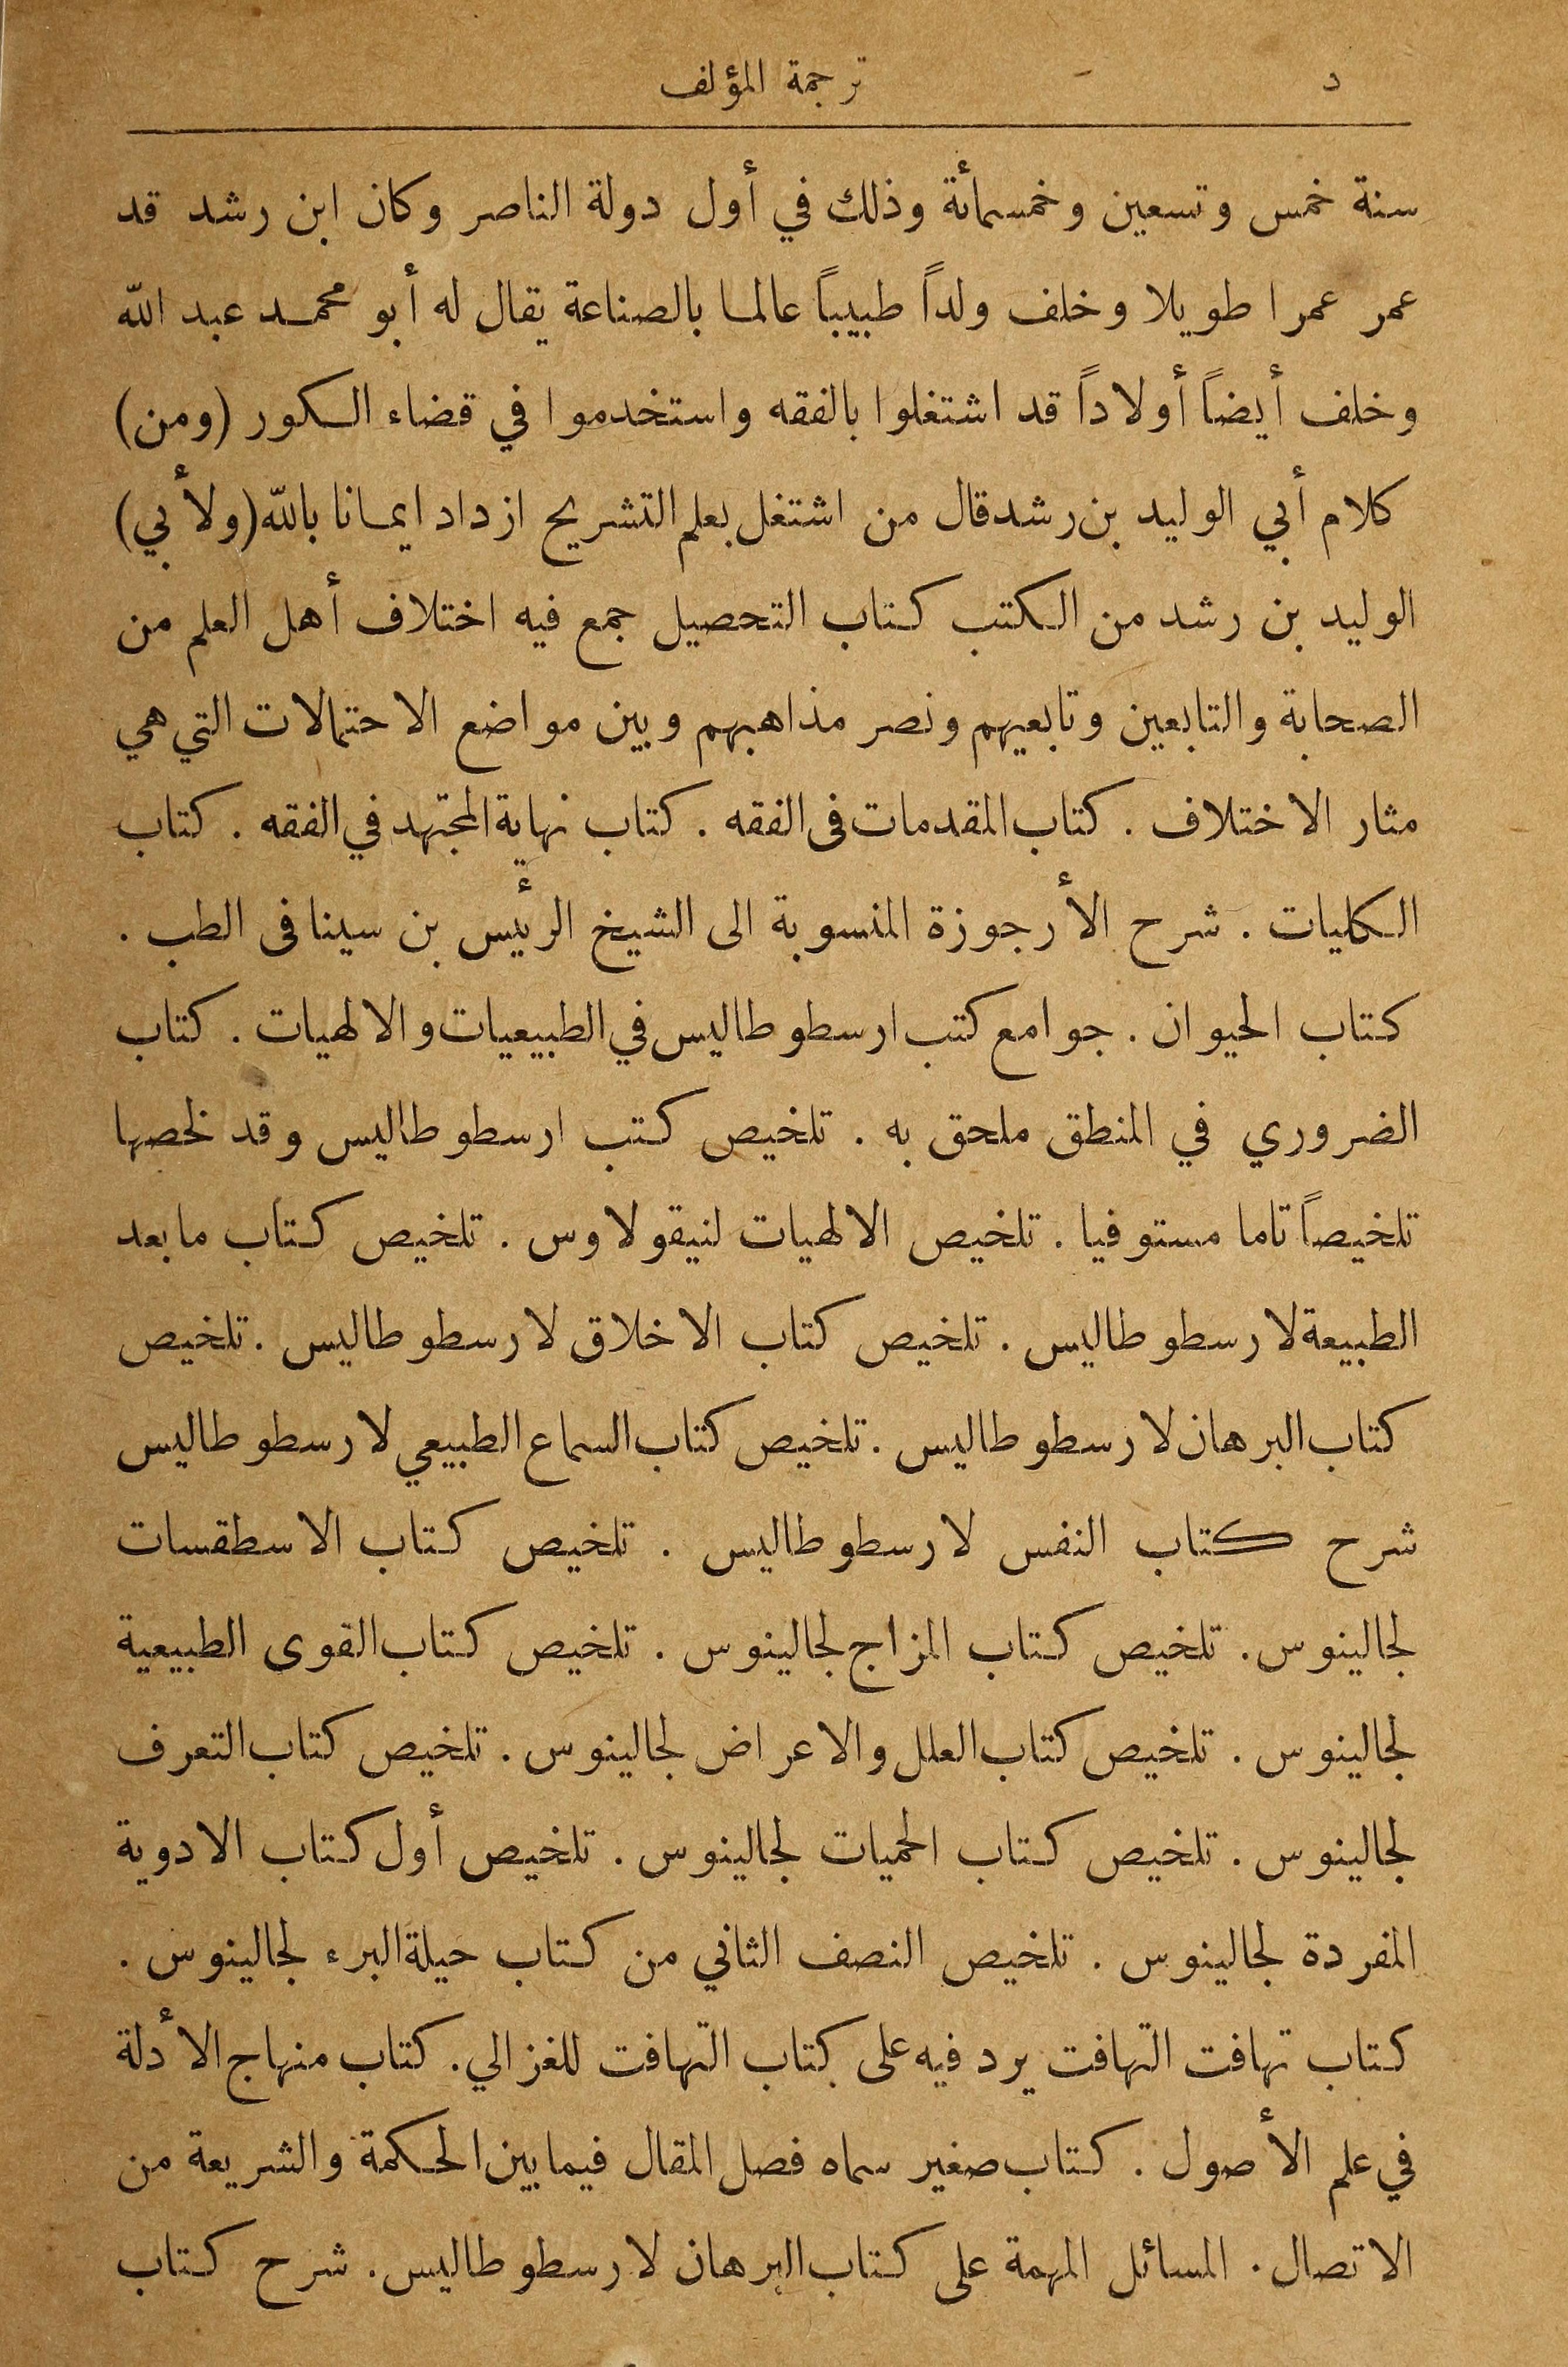 د - ترجمة المؤلف
سنة خمس وتسعين وخمسمأئة وذلك في أول دولة الناصر وكان ابن رشد قد
عمر عمرا طويلا وخلف ولداً طبيباً عالما بالصناعة يقال له أبو محمد عبد الله
وخلف أيضاً أولاداً قد اشتغلوا بالفقه واستخدموا في قضاء الكور (ومن)
كلام أبي الوليد بن رشد قال من اشتغل بعلم التشريح ازداد ايمانا بالله (ولأبي)
الوليد بن رشد من الكتب كتاب التحصيل جمع فيه اختلاف أهل العلم من
الصحابة والتابعين وتابعيهم ونصر مذاهبهم وبين مواضع الاحتمالات التي هي
مثار الاختلاف . كتاب المقدمات فى الفقه . كتاب نهاية المجتهد في الفقه . كتاب
الكليات . شرح الأرجوزة المنسوبة الى الشيخ الرئيس بن سينا فى الطب .
كتاب الحيوان . جوامع كتب ارسطوطاليس في الطبيعيات والالهيات . كتاب
الضروري في المنطق ملحق به . تلخيص كتب ارسطوطاليس وقد لخصها
تلخيصاً تاما مستوفيا . تلخيص الالهيات لنيقولاوس . تلخيص كتاب ما بعد
الطبيعة لارسطوطاليس . تلخيص كتاب الاخلاق لارسطوطاليس . تلخيص
كتاب البرهان لارسطوطاليس . تلخيص كتاب السماع الطبيعي لارسطوطاليس
شرح كتاب النفس لارسطوطاليس . تلخيص كتاب الاسطقسات
لجالينوس . تلخيص كتاب المزاج لجالينوس . تلخيص كتاب القوى الطبيعية
لجالينوس . تلخيص كتاب العلل والاعراض لجالينوس . تلخيص كتاب التعرف
لجالينوس . تلخيص كتاب الحميات لجالينوس . تلخيص أول كتاب الادوية
المفردة لجالينوس . تلخيص النصف الثاني من كتاب حيلة البرء لجالينوس .
كتاب تهافت التهافت يرد فيه على كتاب التهافت للغزالي . كتاب منهاج الأدلة
في علم الأصول . كتاب صغير سماه فصل المقال فيما بين الحكمة والشريعة من
الاتصال . المسائل المهمة على كتاب البرهان لارسطوطاليس . شرح كتاب